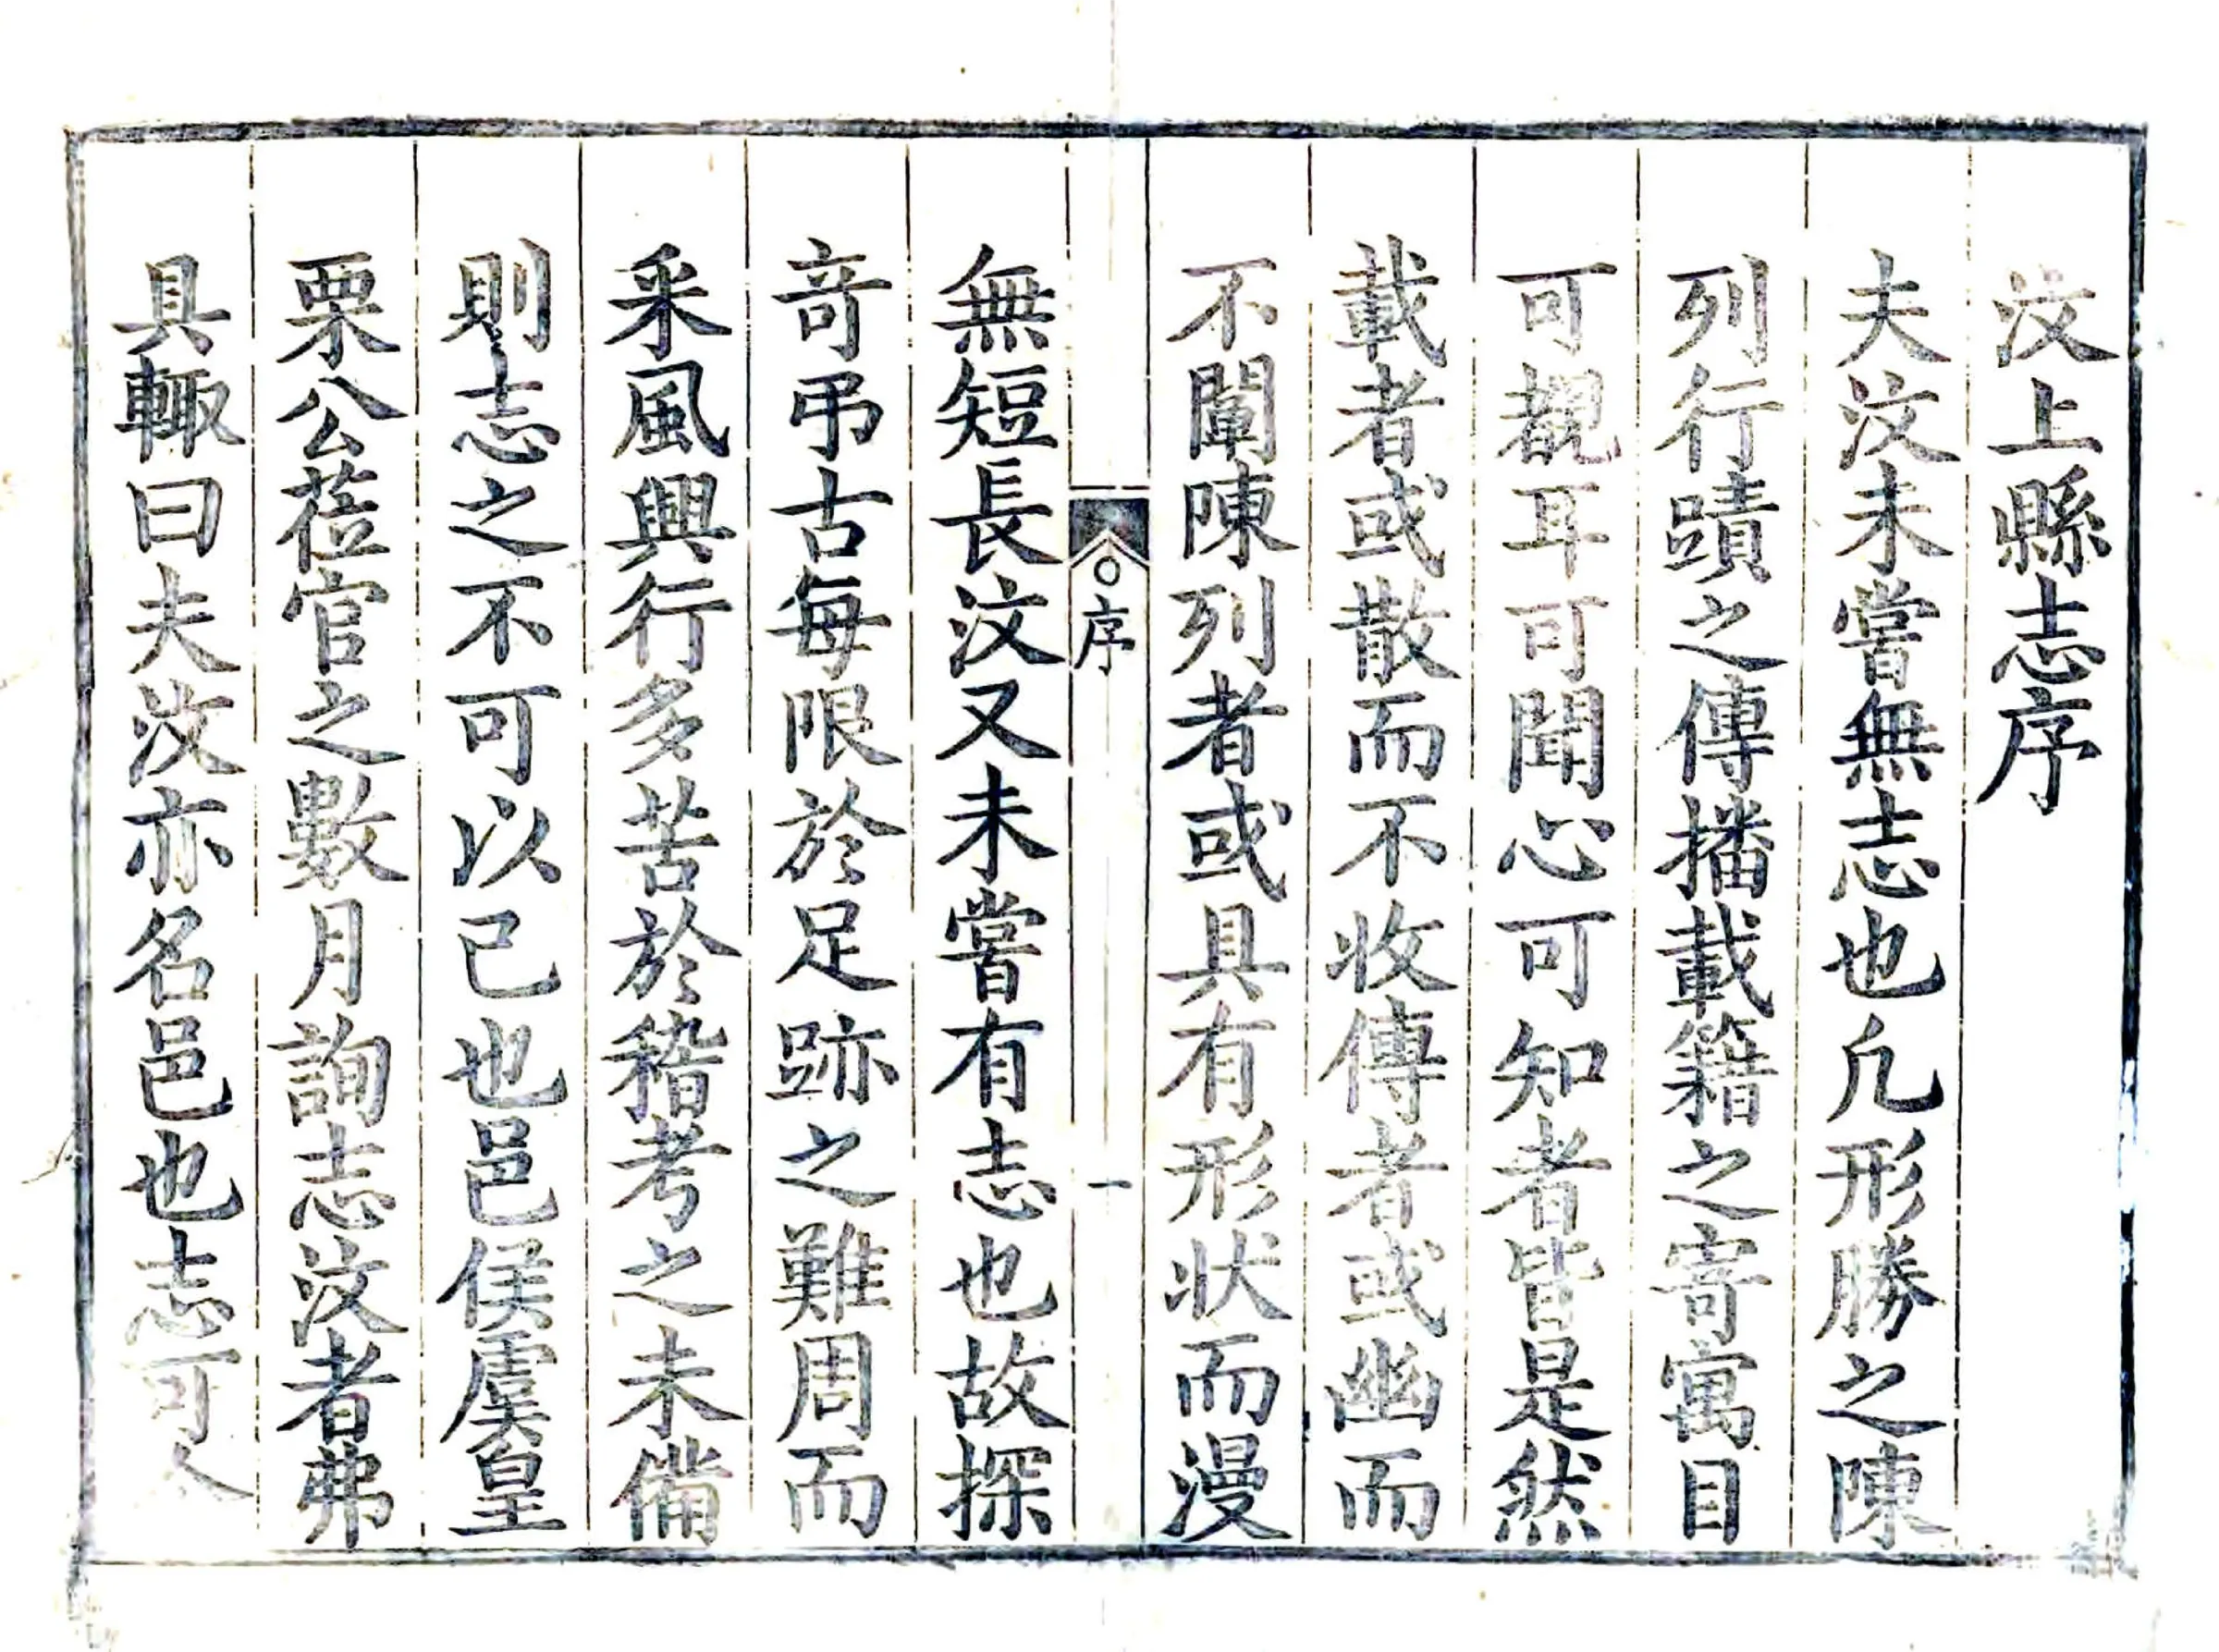 汶上縣志序
夫汶未嘗無志也凡形勝之陳
列行蹟之傳播載籍之寄寓目
可覩耳可聞心可知者皆是然
載者或散而不收傳者或幽而
不闡陳列者或具有形狀而漫
序
一
無短長汶又未嘗有志也故探
竒弔古每限於足跡之難周而
采風興行多苦於稽考之未備
則志之不可以已也邑侯虞皇
栗公蒞官之數月詢志汶者弗
具輙曰夫汶亦名邑也志可久